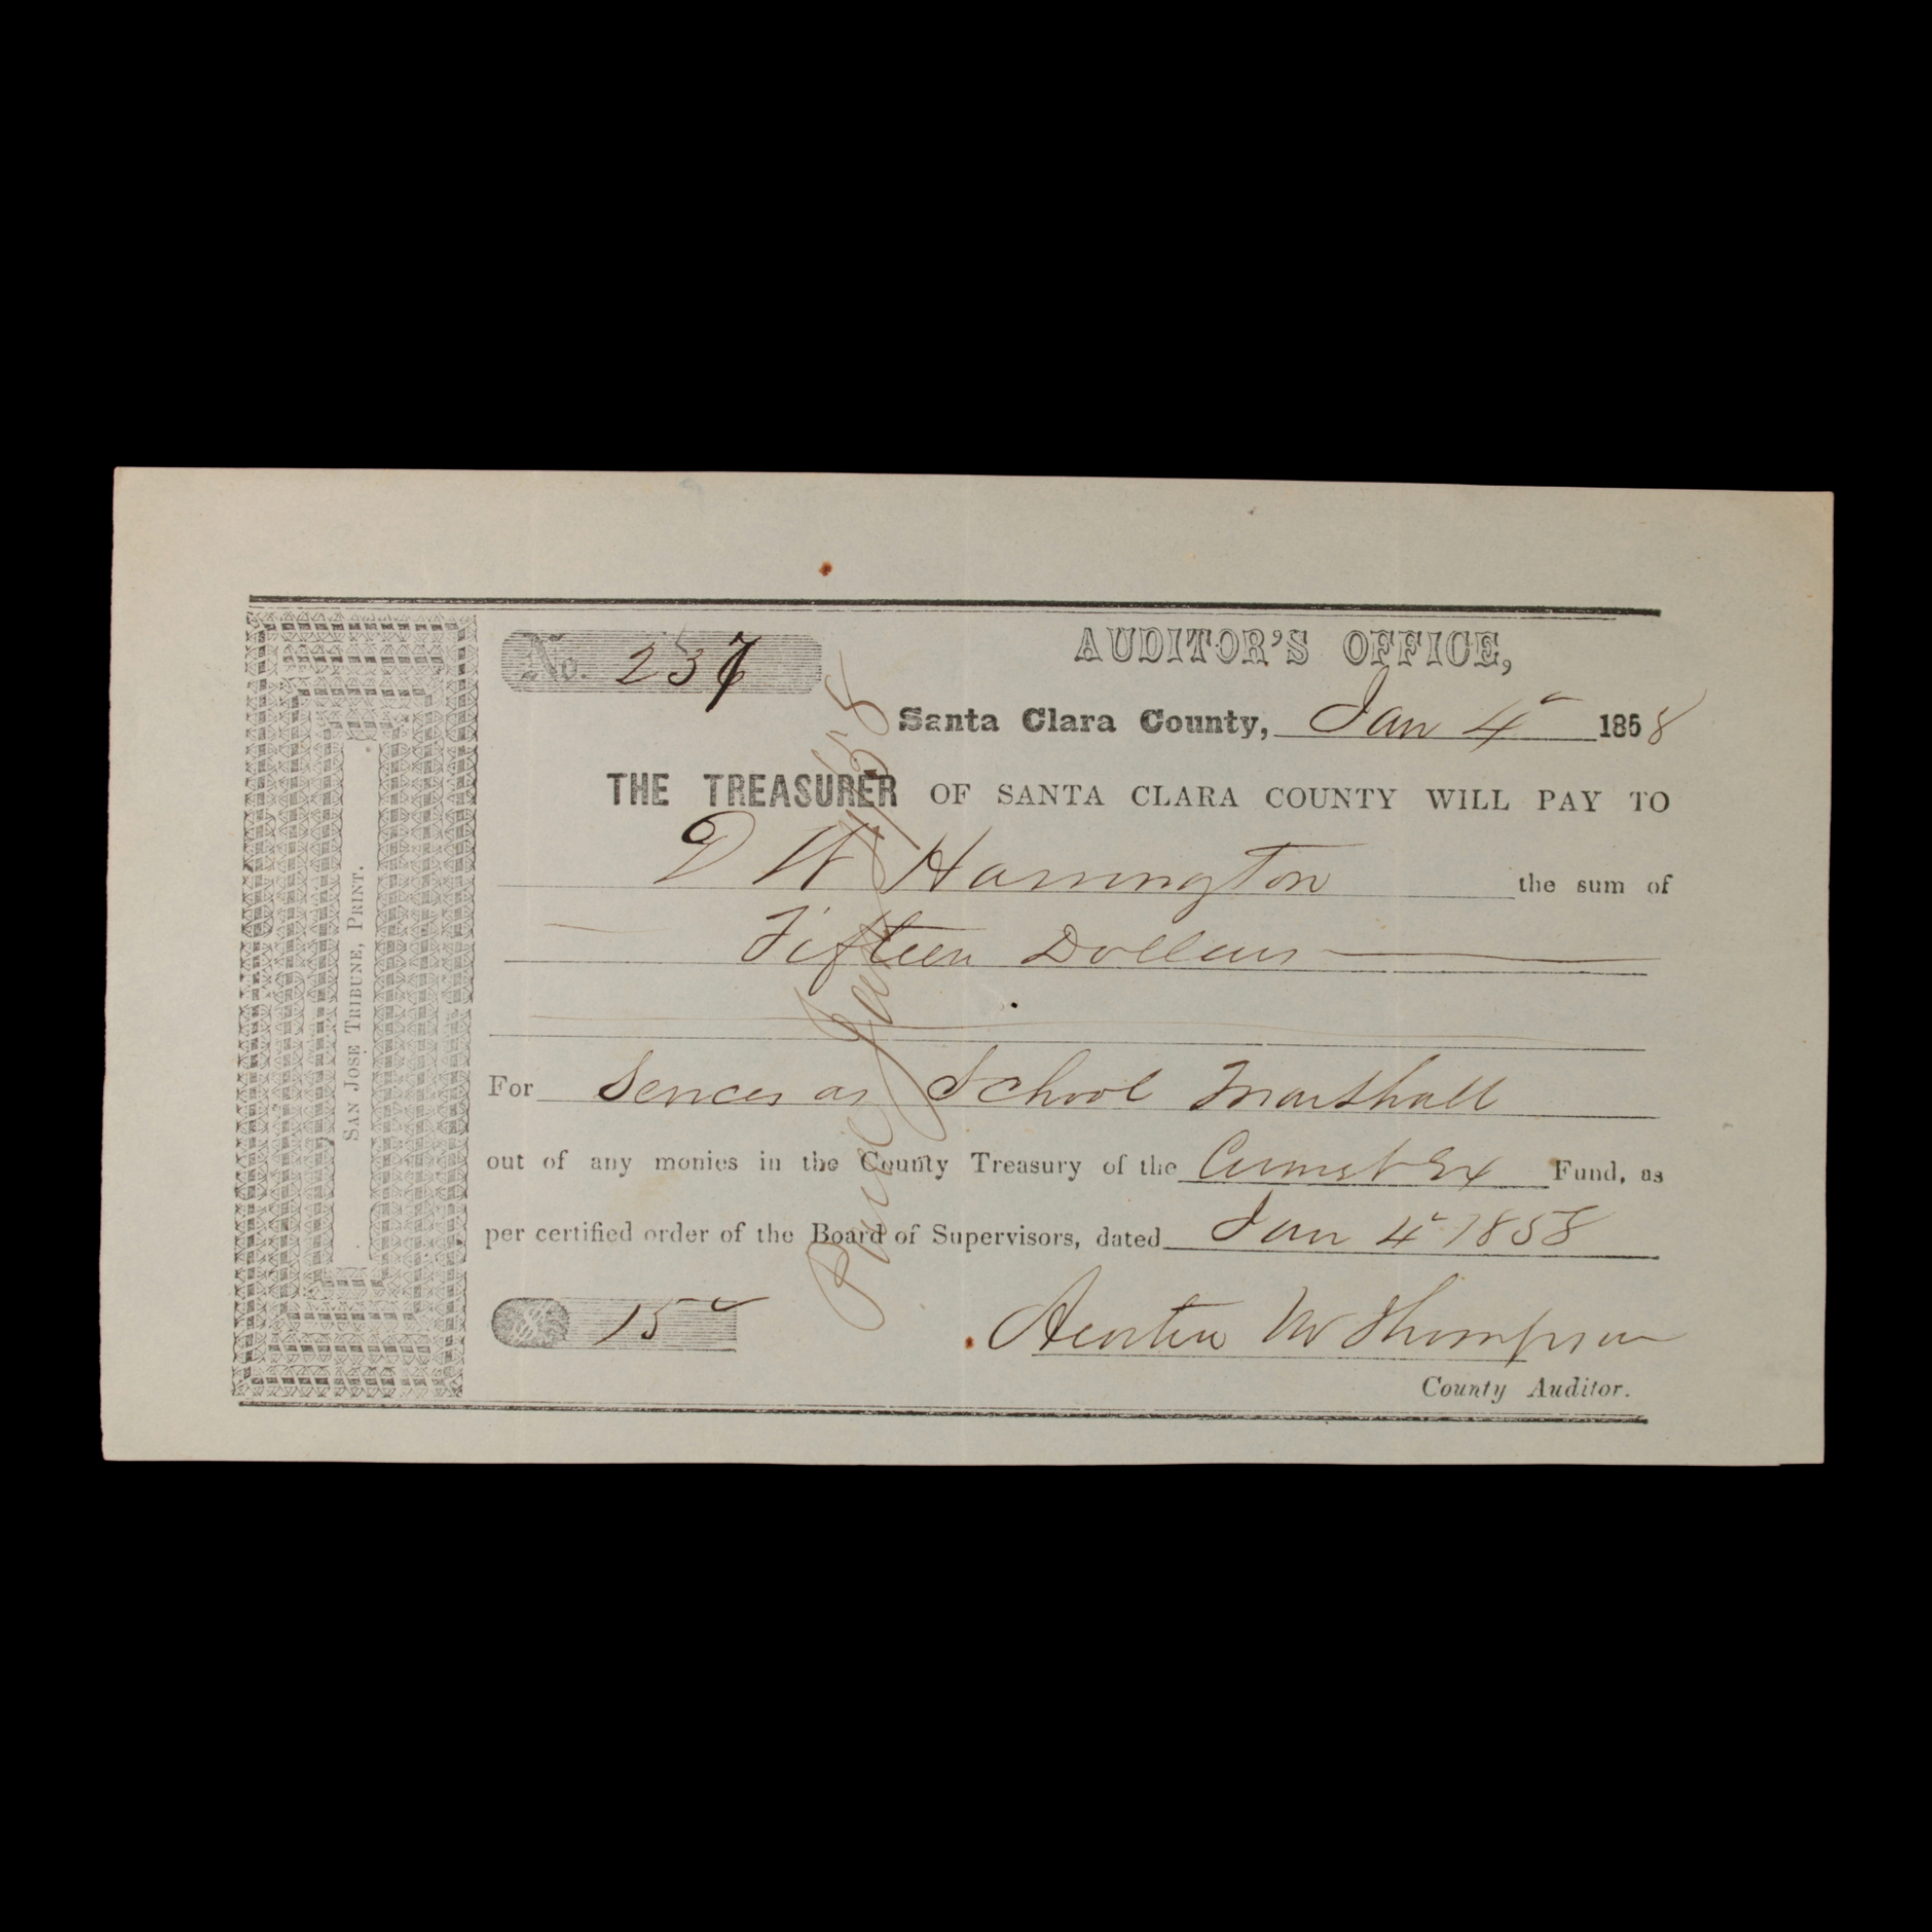 SAN JOSE TRIBUNE, PRINT.
No.
AUDITOR'S OFFICE,
Santa Clara County, Jan 4 1858
THE TREASURER OF SANTA CLARA COUNTY WILL PAY TO
D W Harrington the sum of
Fifteen Dollars
For Services as School Marshall
out of any monies in the County Treasury of the Fund, as
per certified order of the Board of Supervisors, dated Jan 4 1858
15
Thompson
County Auditor.
Paid Jan 4/58